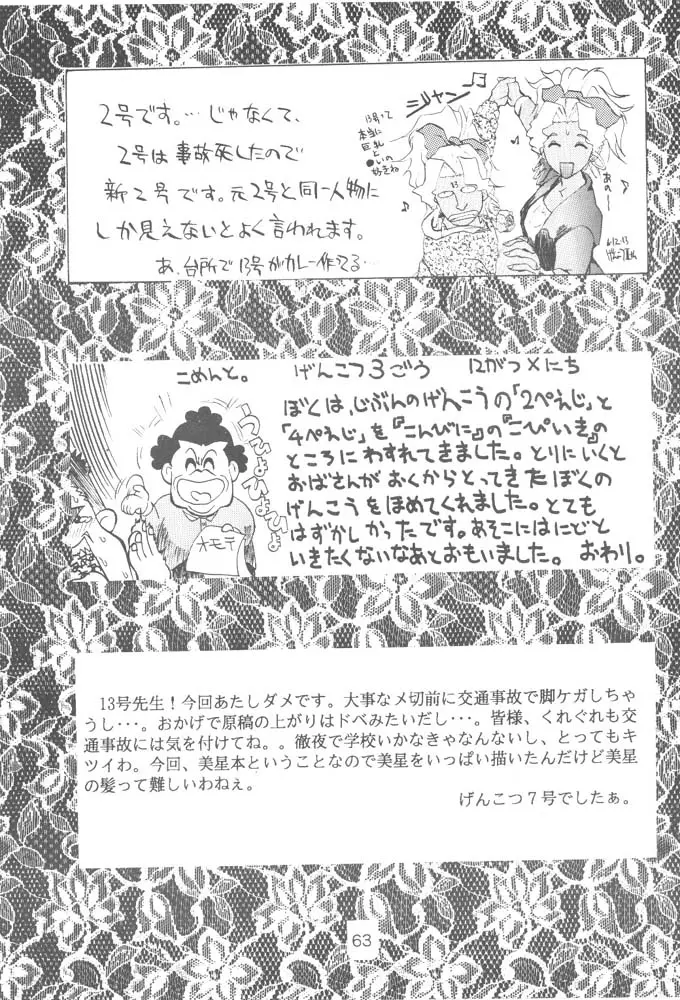 2号です。…じゃなくて、
2号は事故死したので
新2号です。元2号と同一人物に
しか見えないとよく言われます。
あ、台所で13号がカレー作ってる…
ジャーン
13号って
本当に
巨乳と
●いの
好きね
あのー
13
こめんと。 げんこつ3ごう 12がつ×にち
ぼくは、じぶんのげんこうの「2ぺえじ」と
「4ぺえじ」を『こんびに』の『こぴいき』の
ところにわすれてきました。とりにいくと
おばさんがおくからとってきたぼくの
げんこうをほめてくれました。とても
はずかしかったです。あそこにはにどと
いきたくないなあとおもいました。 おわり。
うひょひょひょひょ
オモテ
13号先生！今回あたしダメです。大事な〆切前に交通事故で脚ケガしちゃ
うし･･･。おかげで原稿の上がりはドベみたいだし･･･。皆様、くれぐれも交
通事故には気を付けてね。。徹夜で学校いかなきゃなんないし、とってもキ
ツイわ。今回、美星本ということなので美星をいっぱい描いたんだけど美星
の髪って難しいわねぇ。
げんこつ７号でしたぁ。
63